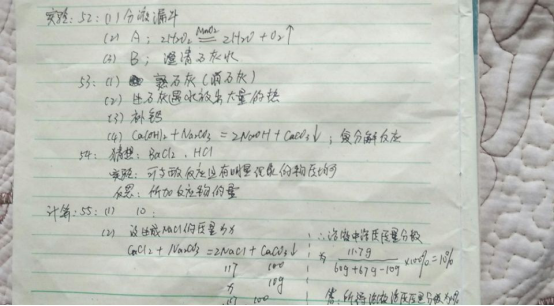 实验: 52: (1) 分液漏斗
(2) A: 2H2O2 MnO2 2H2O + O2↑
(4) B; 澄清石灰水
53: (1) 熟石灰 (消石灰)
(2) 生石灰遇水放出大量的热
(3) 补钙
(4) Ca(OH)2 + Na2CO3 = 2NaOH + CaCO3↓ ; 复分解反应
54: 猜想: BaCl2、HCl
实验: 可与 反应 有明显现象的物质均可
反思: 所加反应物的量
计算: 55: (1) 10;
(2) 设 NaCl的质量为x
CaCl2 + Na2CO3 = 2NaCl + CaCO3↓
117 100
x 10g
117 100
∴溶液中溶质质量分数
为 11.7g
60g+67g-10g ×100%=10%
答: 所得溶液溶质质量分数为